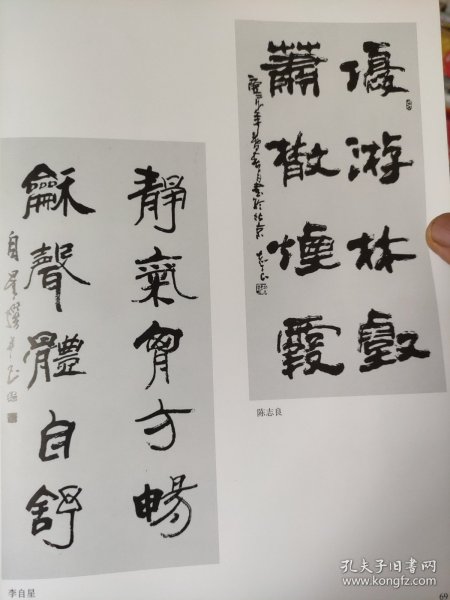 優游林壑
蕭散煙霞
陈志良
靜氣胷方暢
龢聲體自舒
李自星
69
孔夫子旧书网
www.kongfz.com